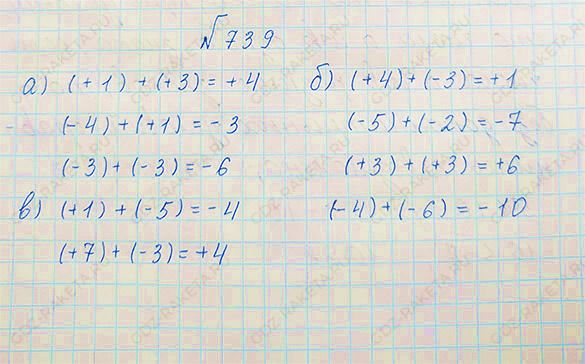 №739
а) (+1) + (+3) = +4 б) (+4) + (-3) = +1
(-4) + (+1) = -3 (-5) + (-2) = -7
(-3) + (-3) = -6 (+3) + (+3) = +6
в) (+1) + (-5) = -4 (-4) + (-6) = -10
(+7) + (-3) = +4
GDZ-RAKETA.RU